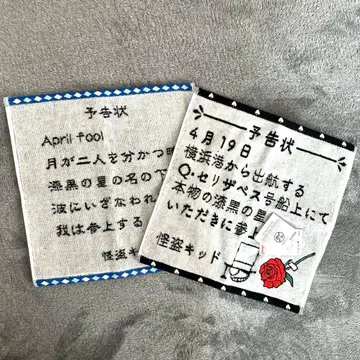 予告状
April fool
月が二人を分かつ
漆黒の星の名の下
波にいざなわれ
我は参上する
怪盗キ
予告状
4月19日
横浜港から出航する
Q・セリザベス号船上にて
本物の漆黒の星
いただきに参上
怪盗キッド